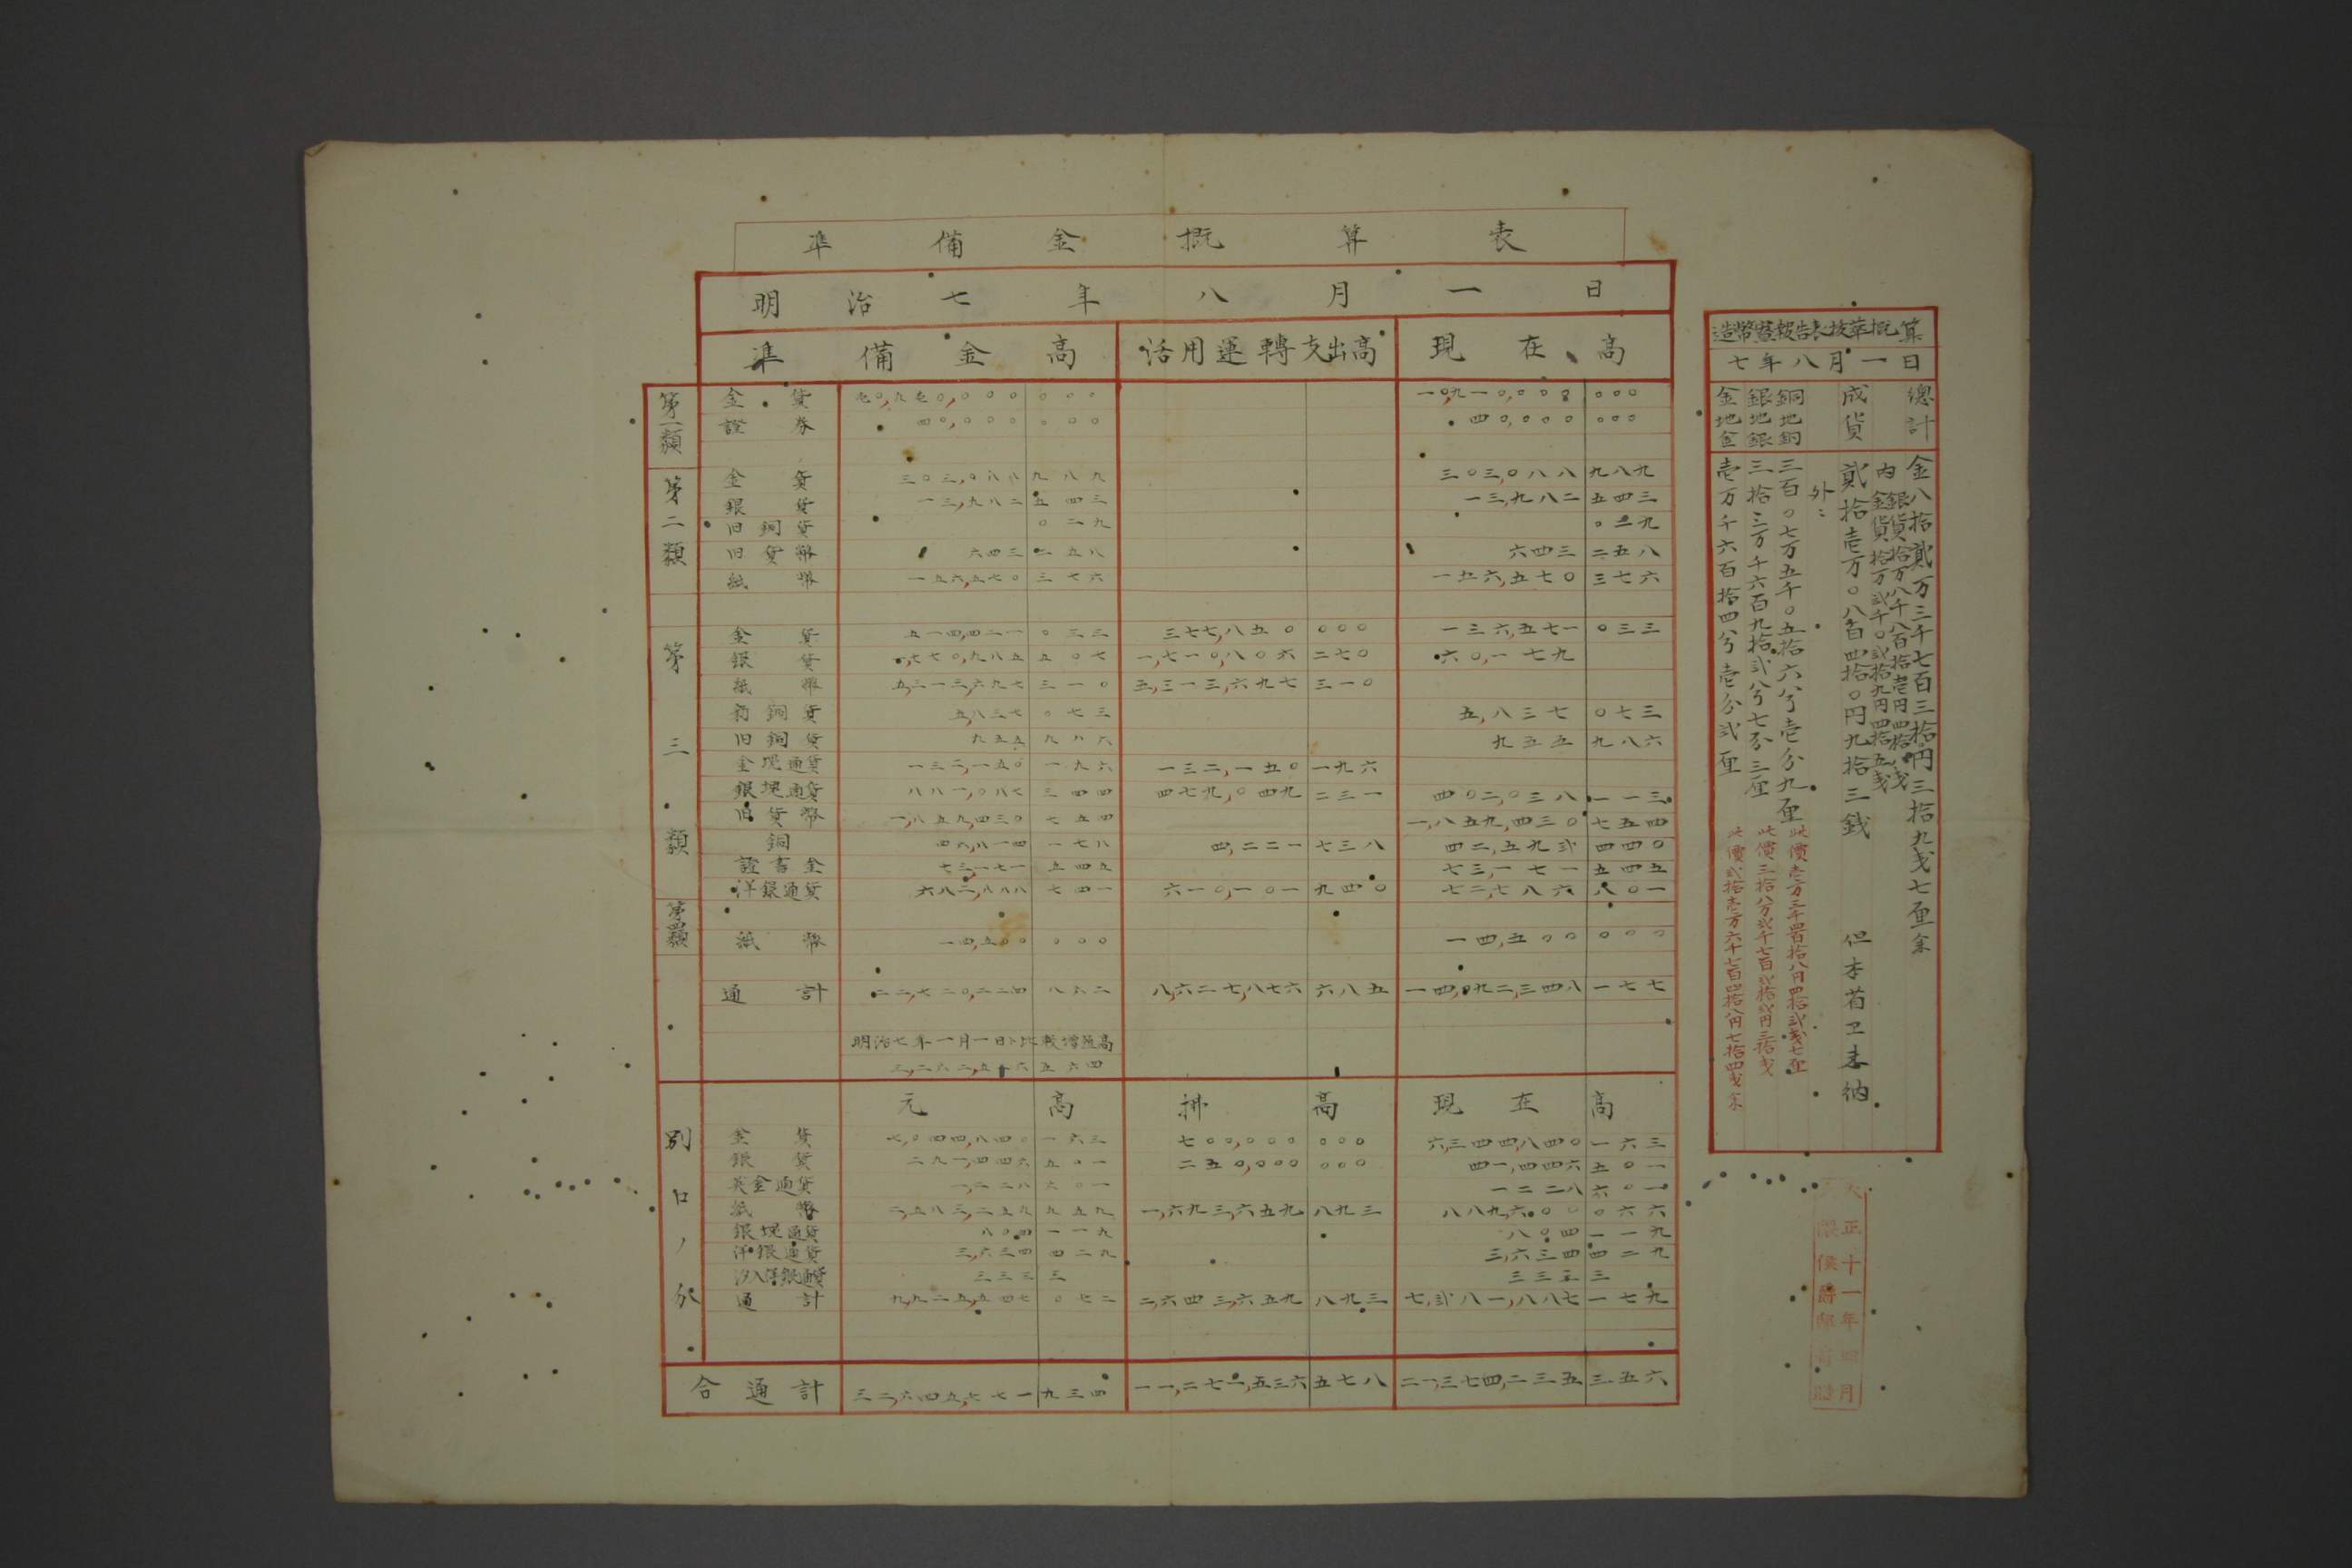 準備金概算表
明治七年八月一日
準備金高 活用運轉支出高 現在高
第一類
金貨 一〇,九一〇,〇〇〇 〇〇〇
證券 四〇,〇〇〇 〇〇〇 四〇,〇〇〇 〇〇〇
第二類
金貨 三〇三,〇八八 九八九 三〇三,〇八八 九八九
銀貨 一三,九八二 五四三 一三,九八二 五四三
旧銅貨 〇二九 〇二九
旧貨幣 六四三 二五八 六四三 二五八
紙幣 一五六,五七〇 三七六 一五六,五七〇 三七六
第三類
金貨 五一四,四二一 〇三三 三七七,八五〇 〇〇〇 一三六,五七一 〇三三
銀貨 一,七七〇,九八五 五〇七 一,七一〇,八〇六 二七〇 六〇,一七九
紙幣 五,三一三,六九七 三一〇 五,三一三,六九七 三一〇
銅貨 五,八三七 〇七三 五,八三七 〇七三
旧銅貨 九五五 九八六 九五五 九八六
金塊通貨 一三二,一五〇 一九六 一三二,一五〇 一九六
銀塊通貨 八八一,〇八七 三四四 四七九,〇四九 二三一 四〇二,〇三八 一一三
旧貨幣 一,八五九,四三〇 七五四 一,八五九,四三〇 七五四
銅 四六,八一四 一七八 四,二二一 七三八 四二,五九弐 四四〇
證書金 七三,一七一 五四五 七三,一七一 五四五
洋銀通貨 六八二,八八八 七四一 六一〇,一〇一 九四〇 七二,七八六 八〇一
第四類
紙幣 一四,五〇〇 〇〇〇 一四,五〇〇 〇〇〇
通計 二二,七二〇,二二四 八六二 八,六二七,八七六 六八五 一四,〇九二,三四八 一七七
明治七年一月一日ト比較増殖高
別口ノ分
元高 拂高 現在高
金貨 七,〇四四,八四〇 一六三 七〇〇,〇〇〇 〇〇〇 六,三四四,八四〇 一六三
銀貨 二九一,四四六 五〇一 二五〇,〇〇〇 〇〇〇 四一,四四六 五〇一
英金通貨 一,二二八 六〇一 一二二八 六〇一
紙幣 二,五八三,二五九 九五九 一,六九三,六五九 八九三 八八九,六〇〇 〇六六
銀塊通貨 八〇四 一一九 八〇四 一一九
洋銀通貨 三,六三四 四二九 三,六三四 四二九
三三三 三 三三三 三
通計 九,九二五,五四七 〇七二 二,六四三,六五九 八九三 七,弐八一,八八七 一七九
合通計 三二,六四五,七七一 九三四 一一,二七一,五三六 五七八 二一,三七四,二三五 三五六
造幣寮報告表抜萃概算
七年八月一日
總計 金八拾貳万三千七百三拾円三拾九戋七厘余
内 銀貨拾万八千八百拾壱円四拾戋
金貨拾万弐千〇弐拾九円四拾五戋
成貨 貳拾壱万〇八百四拾〇円九拾三銭 但本省ヱ未納
外ニ
銅地銅 三百〇七万五千〇五拾六分壱分九厘 此價壱万三千四百拾八円四拾弐戋七厘
銀地銀 三拾三万千六百九拾弐分七分三厘 此價三拾八万弐千七百弐拾弐円三拾戋
金地金 壱万千六百拾四分壱分弐厘 此價弐拾壱万六千七百四拾八円七拾四戋余
大正十一年四月
侯爵邸